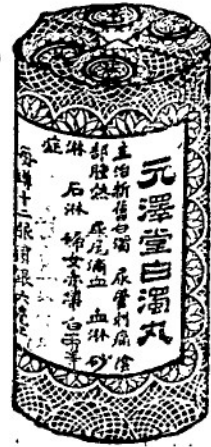 元澤堂白濁丸
主治新舊白濁 尿管刺痛 陰
部腫熱 尿尾滴血 血淋 砂
淋 石淋 婦女赤帶白帶等
症
每罐十二服